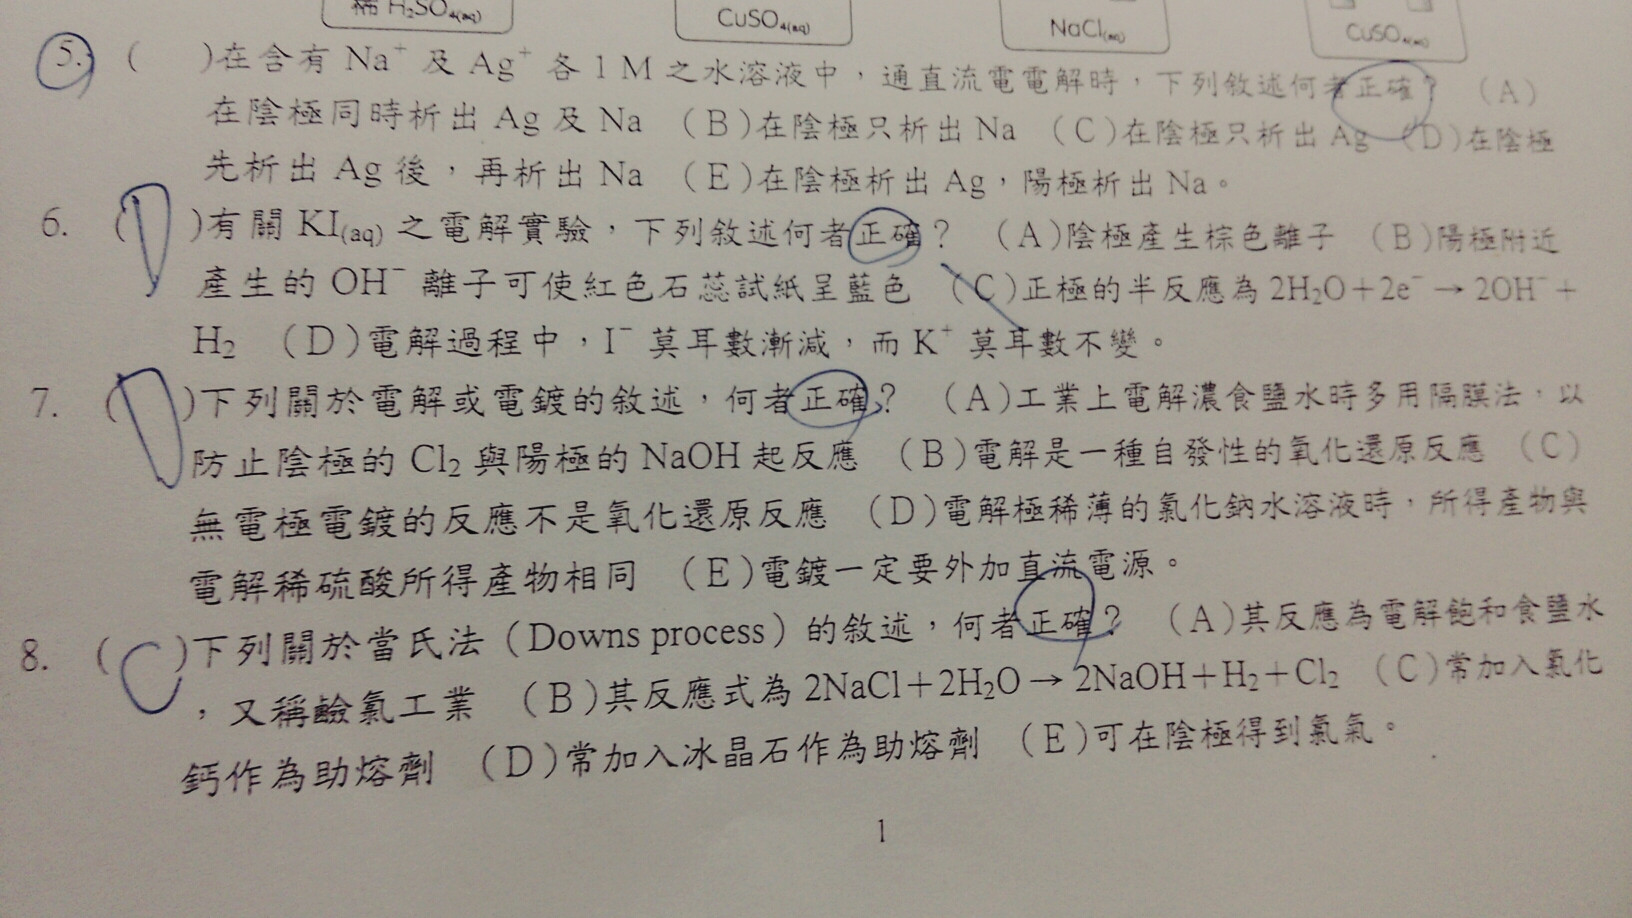 稀 H₂SO₄(aq) CuSO₄(aq) NaCl(aq) CuSO₄(aq)
5. ( )在含有 Na⁺ 及 Ag⁺ 各 1 M 之水溶液中，通直流電電解時，下列敘述何者正確？ (A)
在陰極同時析出 Ag 及 Na (B)在陰極只析出 Na (C)在陰極只析出 Ag (D)在陰極
先析出 Ag 後，再析出 Na (E)在陰極析出 Ag，陽極析出 Na。
6. (D)有關 KI(aq) 之電解實驗，下列敘述何者正確？ (A)陰極產生棕色離子 (B)陽極附近
產生的 OH⁻ 離子可使紅色石蕊試紙呈藍色 (C)正極的半反應為 2H₂O＋2e⁻→2OH⁻＋
H₂ (D)電解過程中，I⁻ 莫耳數漸減，而 K⁺ 莫耳數不變。
7. (D)下列關於電解或電鍍的敘述，何者正確？ (A)工業上電解濃食鹽水時多用隔膜法，以
防止陰極的 Cl₂ 與陽極的 NaOH 起反應 (B)電解是一種自發性的氧化還原反應 (C)
無電極電鍍的反應不是氧化還原反應 (D)電解極稀薄的氯化鈉水溶液時，所得產物與
電解稀硫酸所得產物相同 (E)電鍍一定要外加直流電源。
8. (C)下列關於當氏法（Downs process）的敘述，何者正確？ (A)其反應為電解飽和食鹽水
，又稱鹼氯工業 (B)其反應式為 2NaCl＋2H₂O→2NaOH＋H₂＋Cl₂ (C)常加入氯化
鈣作為助熔劑 (D)常加入冰晶石作為助熔劑 (E)可在陰極得到氯氣。
1